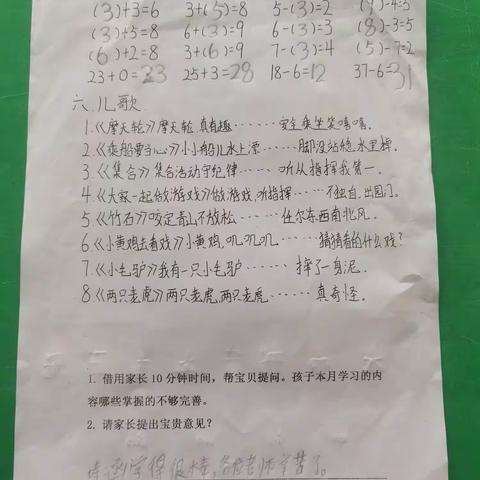 (3)+3=6 3+(5)=8 5-(3)=2 (9)-4=5
(3)+5=8 6+(3)=9 6-(3)=3 (8)-3=5
(6)+2=8 3+(6)=9 7-(3)=4 (5)-7=2
23+0=23 25+3=28 18-6=12 37-6=31
六、儿歌.
1.《摩天轮》摩天轮,真有趣……安全乘坐笑嘻嘻.
2.《乘船要当心》小小船儿水上漂……脚没站稳水里掉.
3.《集合》集合活动守纪律……听从指挥我第一.
4.《大家一起做游戏》做游戏,听指挥……不独自出园门.
5.《竹石》咬定青山不放松……任尔东西南北风.
6.《小黄鸡去看戏》小黄鸡,叽叽叽……猜猜看的什么戏?
7.《小毛驴》我有一只小毛驴……摔了一身泥.
8.《两只老虎》两只老虎,两只老虎……真奇怪.
1. 借用家长 10 分钟时间，帮宝贝提问。孩子本月学习的内
容哪些掌握的不够完善。
2. 请家长提出宝贵意见？
学得很棒,各位老师辛苦了。